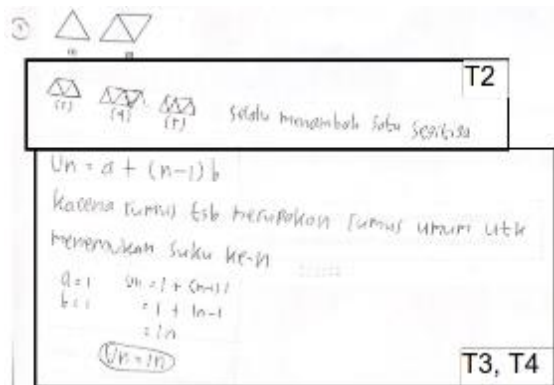 T2
(4) (5)
selalu menambah satu segitiga
Un = a + (n-1) b
karena rumus tsb merupakan rumus umum utk
menemukan suku ke-n
a = 1 Un = 1 + (n-1) 1
b = 1 = 1 + 1n-1
= 1n
Un = 1n
T3, T4